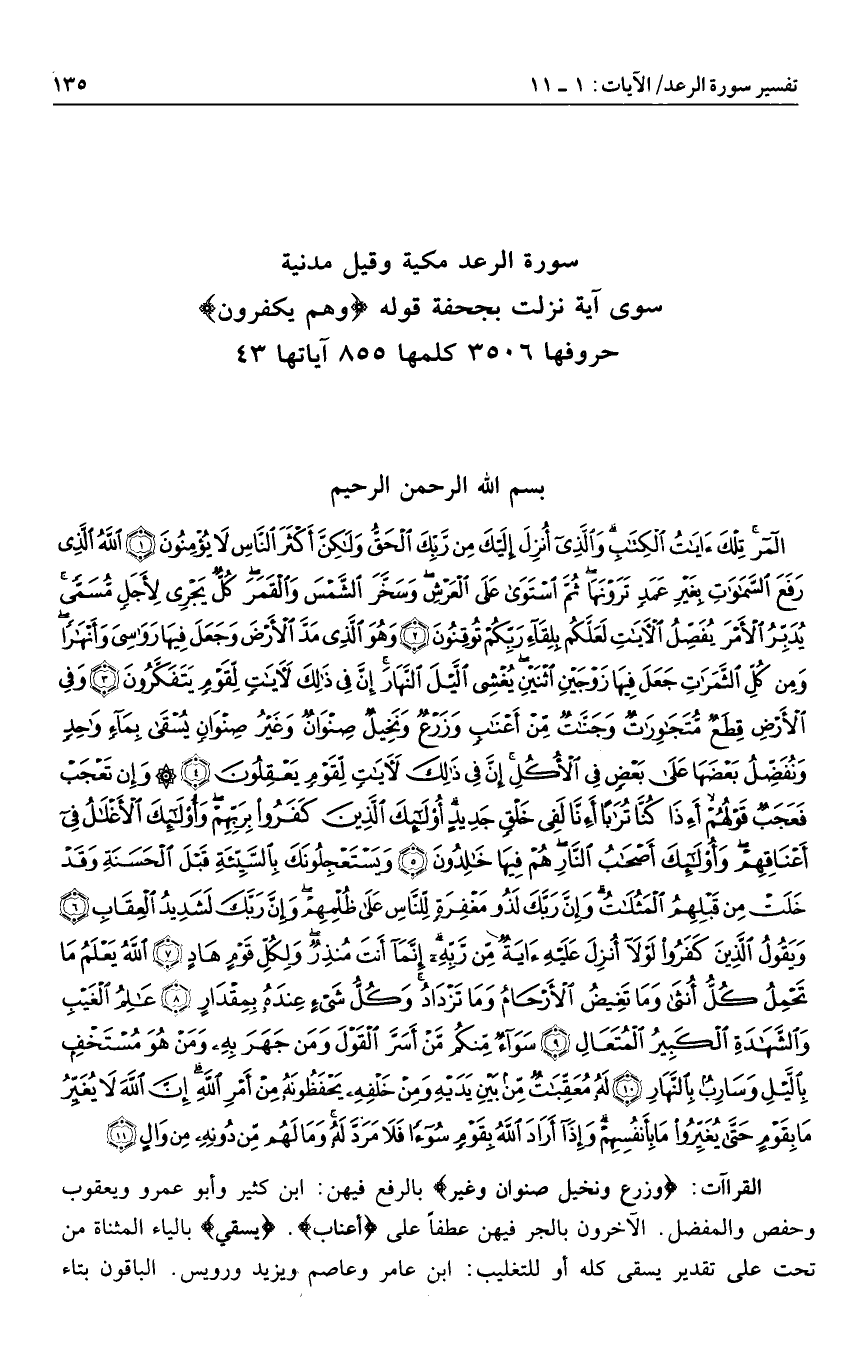 تفسير سورة الرعد/ الآيات: ١ ـ ١١ ١٣٥
سورة الرعد مكية وقيل مدنية
سوى آية نزلت بجحفة قوله ﴿وهم يكفرون﴾
حروفها ٣٥٠٦ كلمها ٨٥٥ آياتها ٤٣
بسم الله الرحمن الرحيم
الٓمٓرۚ تِلۡكَ ءَايَٰتُ ٱلۡكِتَٰبِۗ وَٱلَّذِيٓ أُنزِلَ إِلَيۡكَ مِن رَّبِّكَ ٱلۡحَقُّ وَلَٰكِنَّ أَكۡثَرَ ٱلنَّاسِ لَا يُؤۡمِنُونَ ﴿١﴾ ٱللَّهُ ٱلَّذِي
رَفَعَ ٱلسَّمَٰوَٰتِ بِغَيۡرِ عَمَدٖ تَرَوۡنَهَاۖ ثُمَّ ٱسۡتَوَىٰ عَلَى ٱلۡعَرۡشِۖ وَسَخَّرَ ٱلشَّمۡسَ وَٱلۡقَمَرَۖ كُلّٞ يَجۡرِي لِأَجَلٖ مُّسَمّٗىۚ
يُدَبِّرُ ٱلۡأَمۡرَ يُفَصِّلُ ٱلۡأٓيَٰتِ لَعَلَّكُم بِلِقَآءِ رَبِّكُمۡ تُوقِنُونَ ﴿٢﴾ وَهُوَ ٱلَّذِي مَدَّ ٱلۡأَرۡضَ وَجَعَلَ فِيهَا رَوَٰسِيَ وَأَنۡهَٰرٗاۖ
وَمِن كُلِّ ٱلثَّمَرَٰتِ جَعَلَ فِيهَا زَوۡجَيۡنِ ٱثۡنَيۡنِۖ يُغۡشِي ٱلَّيۡلَ ٱلنَّهَارَۚ إِنَّ فِي ذَٰلِكَ لَأٓيَٰتٖ لِّقَوۡمٖ يَتَفَكَّرُونَ ﴿٣﴾ وَفِي
ٱلۡأَرۡضِ قِطَعٞ مُّتَجَٰوِرَٰتٞ وَجَنَّٰتٞ مِّنۡ أَعۡنَٰبٖ وَزَرۡعٞ وَنَخِيلٞ صِنۡوَانٞ وَغَيۡرُ صِنۡوَانٖ يُسۡقَىٰ بِمَآءٖ وَٰحِدٖ
وَنُفَضِّلُ بَعۡضَهَا عَلَىٰ بَعۡضٖ فِي ٱلۡأُكُلِۚ إِنَّ فِي ذَٰلِكَ لَأٓيَٰتٖ لِّقَوۡمٖ يَعۡقِلُونَ ﴿٤﴾ ۞ وَإِن تَعۡجَبۡ
فَعَجَبٞ قَوۡلُهُمۡ أَءِذَا كُنَّا تُرَٰبًا أَءِنَّا لَفِي خَلۡقٖ جَدِيدٍۗ أُوْلَٰٓئِكَ ٱلَّذِينَ كَفَرُواْ بِرَبِّهِمۡۖ وَأُوْلَٰٓئِكَ ٱلۡأَغۡلَٰلُ فِيٓ
أَعۡنَاقِهِمۡۖ وَأُوْلَٰٓئِكَ أَصۡحَٰبُ ٱلنَّارِۖ هُمۡ فِيهَا خَٰلِدُونَ ﴿٥﴾ وَيَسۡتَعۡجِلُونَكَ بِٱلسَّيِّئَةِ قَبۡلَ ٱلۡحَسَنَةِ وَقَدۡ
خَلَتۡ مِن قَبۡلِهِمُ ٱلۡمَثُلَٰتُۗ وَإِنَّ رَبَّكَ لَذُو مَغۡفِرَةٖ لِّلنَّاسِ عَلَىٰ ظُلۡمِهِمۡۖ وَإِنَّ رَبَّكَ لَشَدِيدُ ٱلۡعِقَابِ ﴿٦﴾
وَيَقُولُ ٱلَّذِينَ كَفَرُواْ لَوۡلَآ أُنزِلَ عَلَيۡهِ ءَايَةٞ مِّن رَّبِّهِۦٓۗ إِنَّمَآ أَنتَ مُنذِرٞۖ وَلِكُلِّ قَوۡمٍ هَادٍ ﴿٧﴾ ٱللَّهُ يَعۡلَمُ مَا
تَحۡمِلُ كُلُّ أُنثَىٰ وَمَا تَغِيضُ ٱلۡأَرۡحَامُ وَمَا تَزۡدَادُۚ وَكُلُّ شَيۡءٍ عِندَهُۥ بِمِقۡدَارٍ ﴿٨﴾ عَٰلِمُ ٱلۡغَيۡبِ
وَٱلشَّهَٰدَةِ ٱلۡكَبِيرُ ٱلۡمُتَعَالِ ﴿٩﴾ سَوَآءٞ مِّنكُم مَّنۡ أَسَرَّ ٱلۡقَوۡلَ وَمَن جَهَرَ بِهِۦ وَمَنۡ هُوَ مُسۡتَخۡفِۭ
بِٱلَّيۡلِ وَسَارِبُۢ بِٱلنَّهَارِ ﴿١٠﴾ لَهُۥ مُعَقِّبَٰتٞ مِّنۢ بَيۡنِ يَدَيۡهِ وَمِنۡ خَلۡفِهِۦ يَحۡفَظُونَهُۥ مِنۡ أَمۡرِ ٱللَّهِۗ إِنَّ ٱللَّهَ لَا يُغَيِّرُ
مَا بِقَوۡمٍ حَتَّىٰ يُغَيِّرُواْ مَا بِأَنفُسِهِمۡۗ وَإِذَآ أَرَادَ ٱللَّهُ بِقَوۡمٖ سُوٓءٗا فَلَا مَرَدَّ لَهُۥۚ وَمَا لَهُم مِّن دُونِهِۦ مِن وَالٍ ﴿١١﴾
القراآت: ﴿وزرع ونخيل صنوان وغير﴾ بالرفع فيهن: ابن كثير وأبو عمرو ويعقوب
وحفص والمفضل. الآخرون بالجر فيهن عطفاً على ﴿أعناب﴾. ﴿يسقي﴾ بالياء المثناة من
تحت على تقدير يسقى كله أو للتغليب: ابن عامر وعاصم ويزيد ورويس. الباقون بتاء